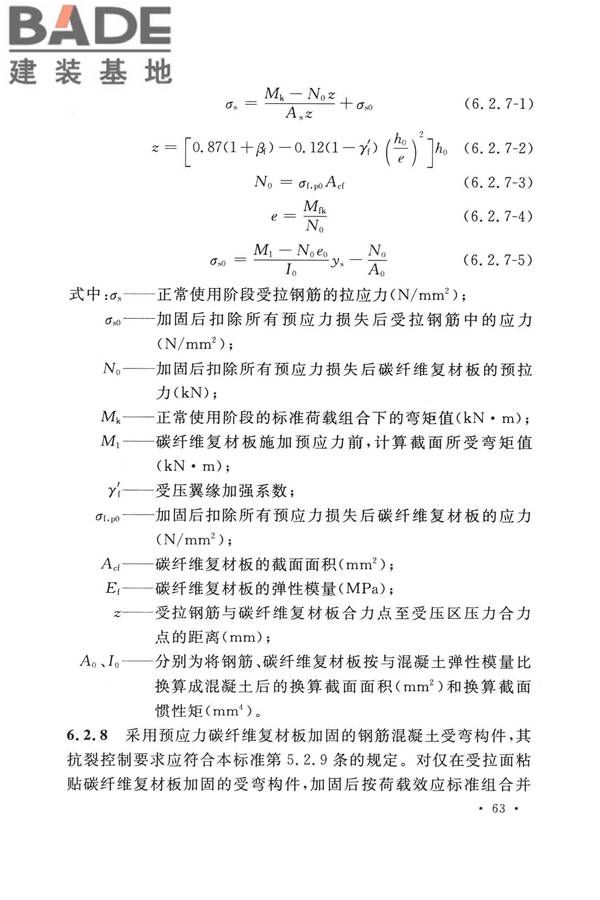 BADE
建装基地
σₛ = (Mₖ − N₀z)/(Aₛz) + σₛ₀ (6.2.7-1)
z = [0.87(1+βf)−0.12(1−γ′f)(h₀/e)²]h₀ (6.2.7-2)
N₀ = σf,p0 Acf (6.2.7-3)
e = Mfk/N₀ (6.2.7-4)
σₛ₀ = (M₁ − N₀e₀)/I₀ yₛ − N₀/A₀ (6.2.7-5)
式中:σₛ——正常使用阶段受拉钢筋的拉应力(N/mm²);
σₛ₀——加固后扣除所有预应力损失后受拉钢筋中的应力
(N/mm²);
N₀——加固后扣除所有预应力损失后碳纤维复材板的预拉
力(kN);
Mₖ——正常使用阶段的标准荷载组合下的弯矩值(kN·m);
M₁——碳纤维复材板施加预应力前,计算截面所受弯矩值
(kN·m);
γ′f——受压翼缘加强系数;
σf,p0——加固后扣除所有预应力损失后碳纤维复材板的应力
(N/mm²);
Acf——碳纤维复材板的截面面积(mm²);
Ef——碳纤维复材板的弹性模量(MPa);
z——受拉钢筋与碳纤维复材板合力点至受压区压力合力
点的距离(mm);
A₀、I₀——分别为将钢筋、碳纤维复材板按与混凝土弹性模量比
换算成混凝土后的换算截面面积(mm²)和换算截面
惯性矩(mm⁴)。
6.2.8 采用预应力碳纤维复材板加固的钢筋混凝土受弯构件,其
抗裂控制要求应符合本标准第5.2.9条的规定。对仅在受拉面粘
贴碳纤维复材板加固的受弯构件,加固后按荷载效应标准组合并
· 63 ·